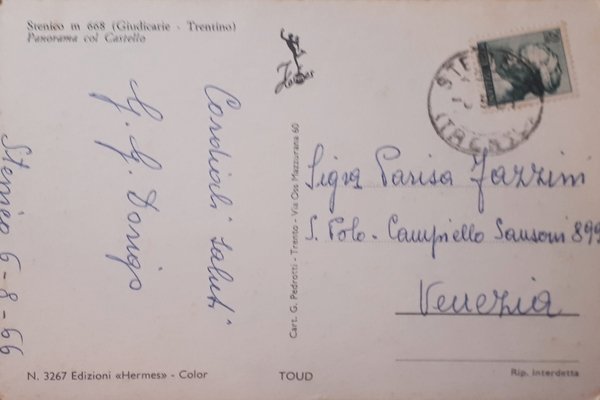 Stenico m 668 (Giudicarie - Trentino)
Panorama col Castello
Stenico 6-8-66
Cordiali saluti
G. G. Dorigo
Cart. G. Pedrotti - Trento - Via Oss Mazzurana 60
Sigra Parisa Fazzini
S. Polo - Campiello Sansoni 899
Venezia
N. 3267 Edizioni «Hermes» - Color
TOUD
Rip. interdetta